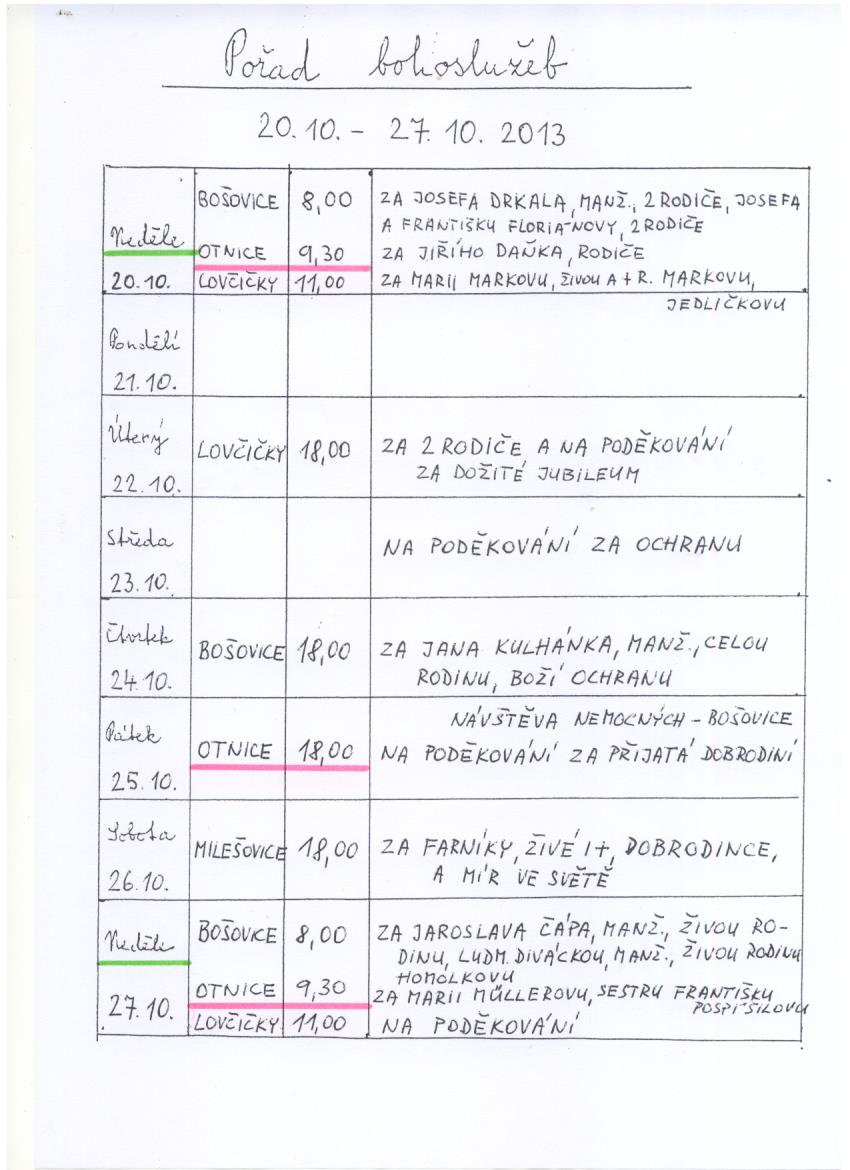 Pořad bohoslužeb
20.10. - 27.10. 2013
Neděle
20.10.
BOŠOVICE 8,00 ZA JOSEFA DRKALA, MANŽ., 2 RODIČE, JOSEFA
A FRANTIŠKU FLORIANOVY, 2 RODIČE
OTNICE 9,30 ZA JIŘÍHO DAŇKA, RODIČE
LOVČIČKY 11,00 ZA MARII MARKOVU, ŽIVOU A + R. MARKOVU,
JEDLIČKOVU
Pondělí
21.10.
Úterý
22.10.
LOVČIČKY 18,00 ZA 2 RODIČE A NA PODĚKOVÁNÍ
ZA DOŽITÉ JUBILEUM
Středa
23.10.
NA PODĚKOVÁNÍ ZA OCHRANU
Čtvrtek
24.10.
BOŠOVICE 18,00 ZA JANA KULHÁNKA, MANŽ., CELOU
RODINU, BOŽÍ OCHRANU
Pátek
25.10.
NÁVŠTĚVA NEMOCNÝCH - BOŠOVICE
OTNICE 18,00 NA PODĚKOVÁNÍ ZA PŘIJATÁ DOBRODINÍ
Sobota
26.10.
MILEŠOVICE 18,00 ZA FARNÍKY, ŽIVÉ I +, DOBRODINCE,
A MÍR VE SVĚTĚ
Neděle
27.10.
BOŠOVICE 8,00 ZA JAROSLAVA ČÁPA, MANŽ., ŽIVOU RO-
DINU, LUDM. DIVÁCKOU, MANŽ., ŽIVOU RODINU
HOMOLKOVU
OTNICE 9,30 ZA MARII MÜLLEROVU, SESTRU FRANTIŠKU
POSPÍŠILOVU
LOVČIČKY 11,00 NA PODĚKOVÁNÍ